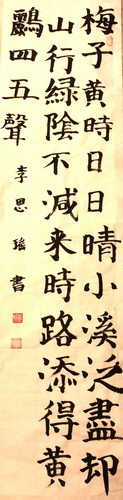 梅子黄時日日晴小溪泛盡却
山行緑陰不減来時路添得黄
鸝四五聲
李思瑶書